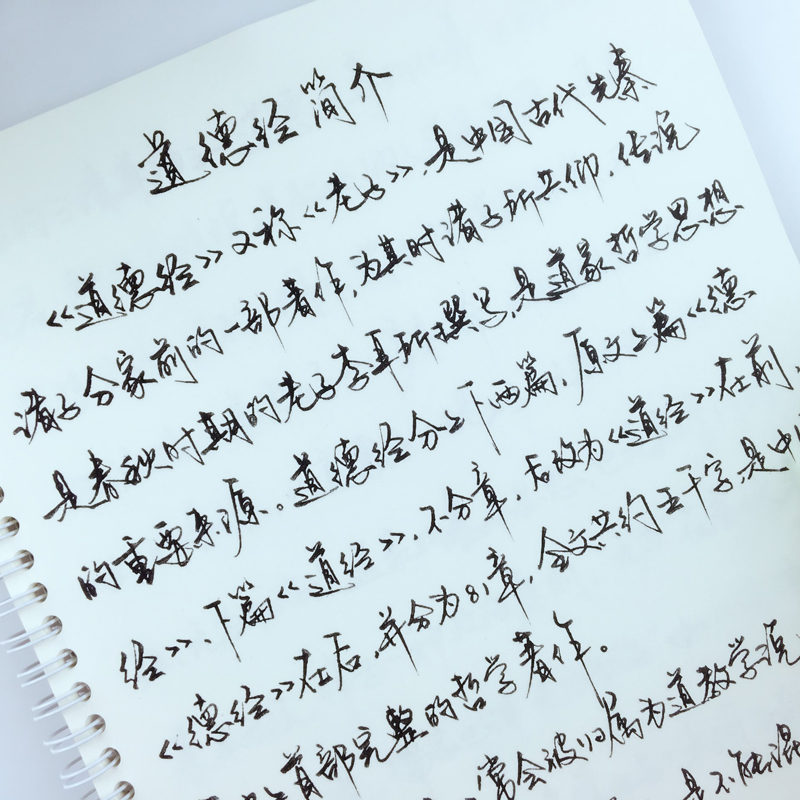 道德经简介
《道德经》又称《老子》,是中国古代先秦
诸子分家前的一部著作,为其时诸子所共仰,传说
是春秋时期的老子李耳所撰写,是道家哲学思想
的重要来源。道德经分上下两篇,原文上篇《德
经》、下篇《道经》,不分章,后改为《道经》在前,
《德经》在后,并分为81章,全文共约五千字,是中
首部完整的哲学著作。
常会被归属为道教学说
是不能混